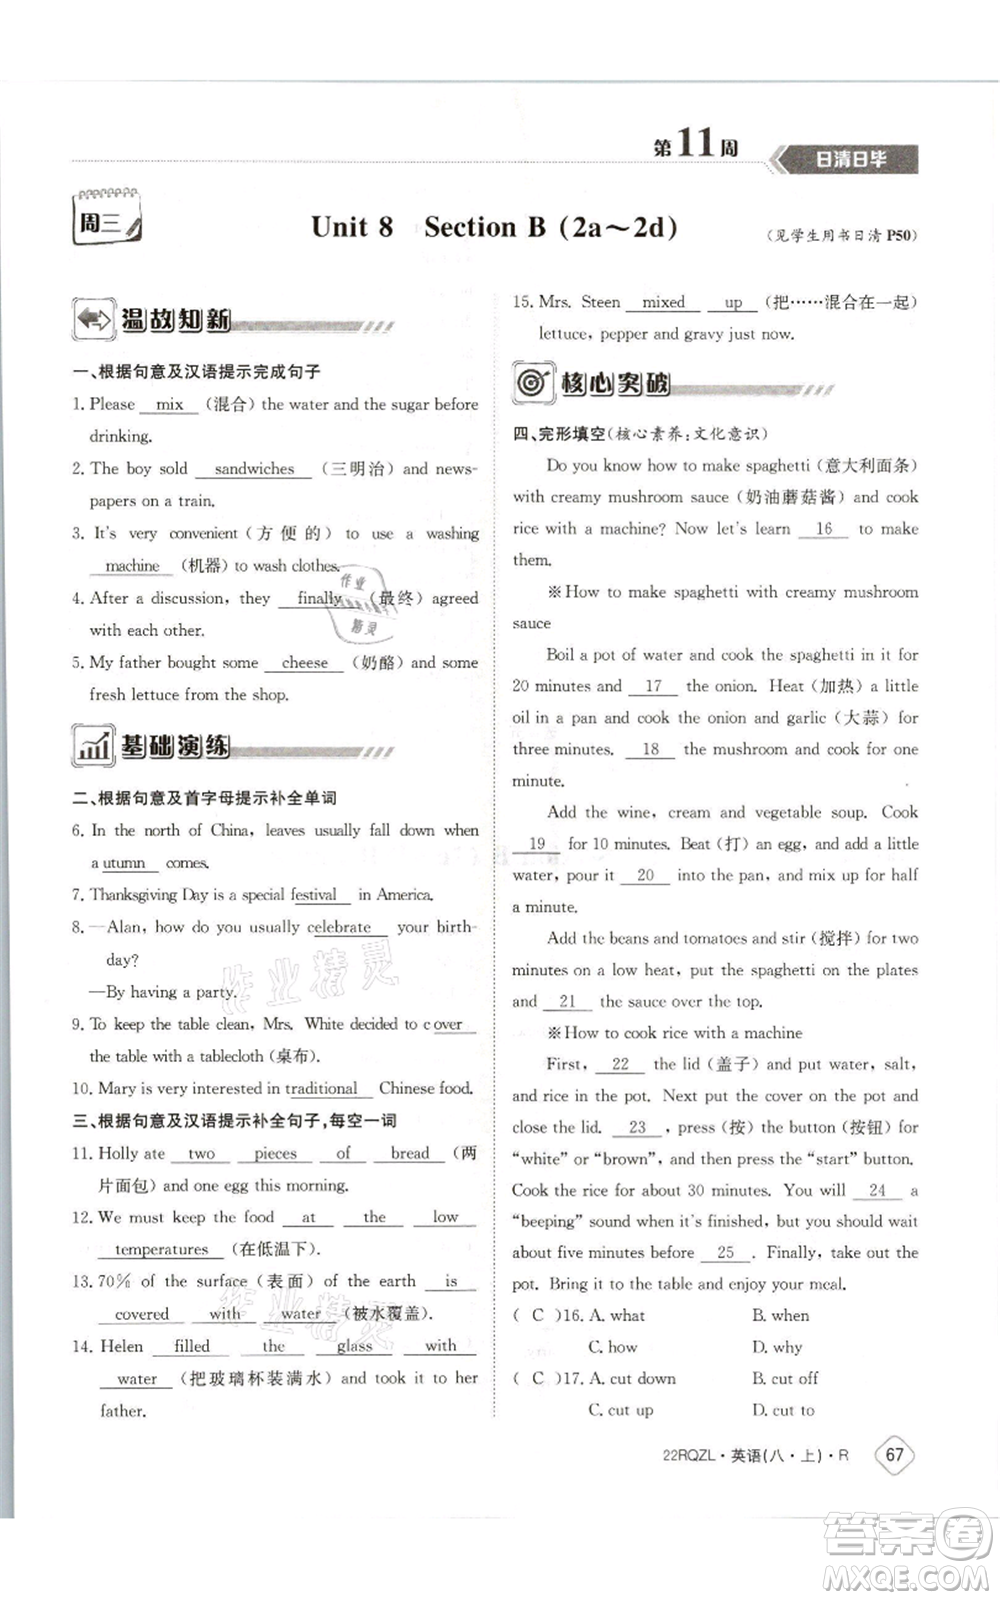 第11周
日清日毕
周三
Unit 8 Section B (2a~2d)
(见学生用书日清 P50)
温故知新
一、根据句意及汉语提示完成句子
1. Please mix (混合) the water and the sugar before
drinking.
2. The boy sold sandwiches (三明治) and news-
papers on a train.
3. It's very convenient (方便的) to use a washing
machine (机器) to wash clothes.
4. After a discussion, they finally (最终) agreed
with each other.
5. My father bought some cheese (奶酪) and
fresh lettuce from the shop.
基础演练
二、根据句意及首字母提示补全单词
6. In the north of China, leaves usually fall down when
autumn comes.
7. Thanksgiving Day is a special festival in America.
8. —Alan, how do you usually celebrate your birth-
day?
—By having a party.
9. To keep the table clean, Mrs. White decided to cover
the table with a tablecloth (桌布).
10. Mary is very interested in traditional Chinese food.
三、根据句意及汉语提示补全句子,每空一词
11. Holly ate two pieces of bread (两
片面包) and one egg this morning.
12. We must keep the food at the low
temperatures (在低温下).
13. 70% of the surface (表面) of the earth is
covered with water (被水覆盖).
14. Helen filled the glass with
water (把玻璃杯装满水) and took it to her
father.
15. Mrs. Steen mixed up (把……混合在一起)
lettuce, pepper and gravy just now.
核心突破
四、完形填空(核心素养:文化意识)
Do you know how to make spaghetti (意大利面条)
with creamy mushroom sauce (奶油蘑菇酱) and cook
rice with a machine? Now let's learn 16 to make
them.
※How to make spaghetti with creamy mushroom
sauce
Boil a pot of water and cook the spaghetti in it for
20 minutes and 17 the onion. Heat (加热) a little
oil in a pan and cook the onion and garlic (大蒜) for
three minutes. 18 the mushroom and cook for one
minute.
Add the wine, cream and vegetable soup. Cook
19 for 10 minutes. Beat (打) an egg, and cook
well, pour it 20 into the pan, and mix up for half
a minute.
Add the beans and tomatoes and stir (搅拌) for two
minutes on a low heat, put the spaghetti on the plates
and 21 the sauce over the top.
※How to cook rice with a machine
First, 22 the lid (盖子) and put water, salt,
and rice in the pot. Next put the cover on the pot and
close the lid. 23 , press (按) the button (按钮) of
"white" or "brown", and then press the "start" button.
Cook the rice for about 30 minutes. You will 24 a
"beeping" sound when it's ready, but you should wait
about five minutes before 25 . Finally, take out the
pot. Bring it to the table and enjoy your meal.
( C )16. A. what B. when
C. how D. why
( C )17. A. cut down B. cut off
C. cut up D. cut to
22RQZL·英语(八·上)·R 67
作业精灵
作业精灵
作业精灵
答案卷